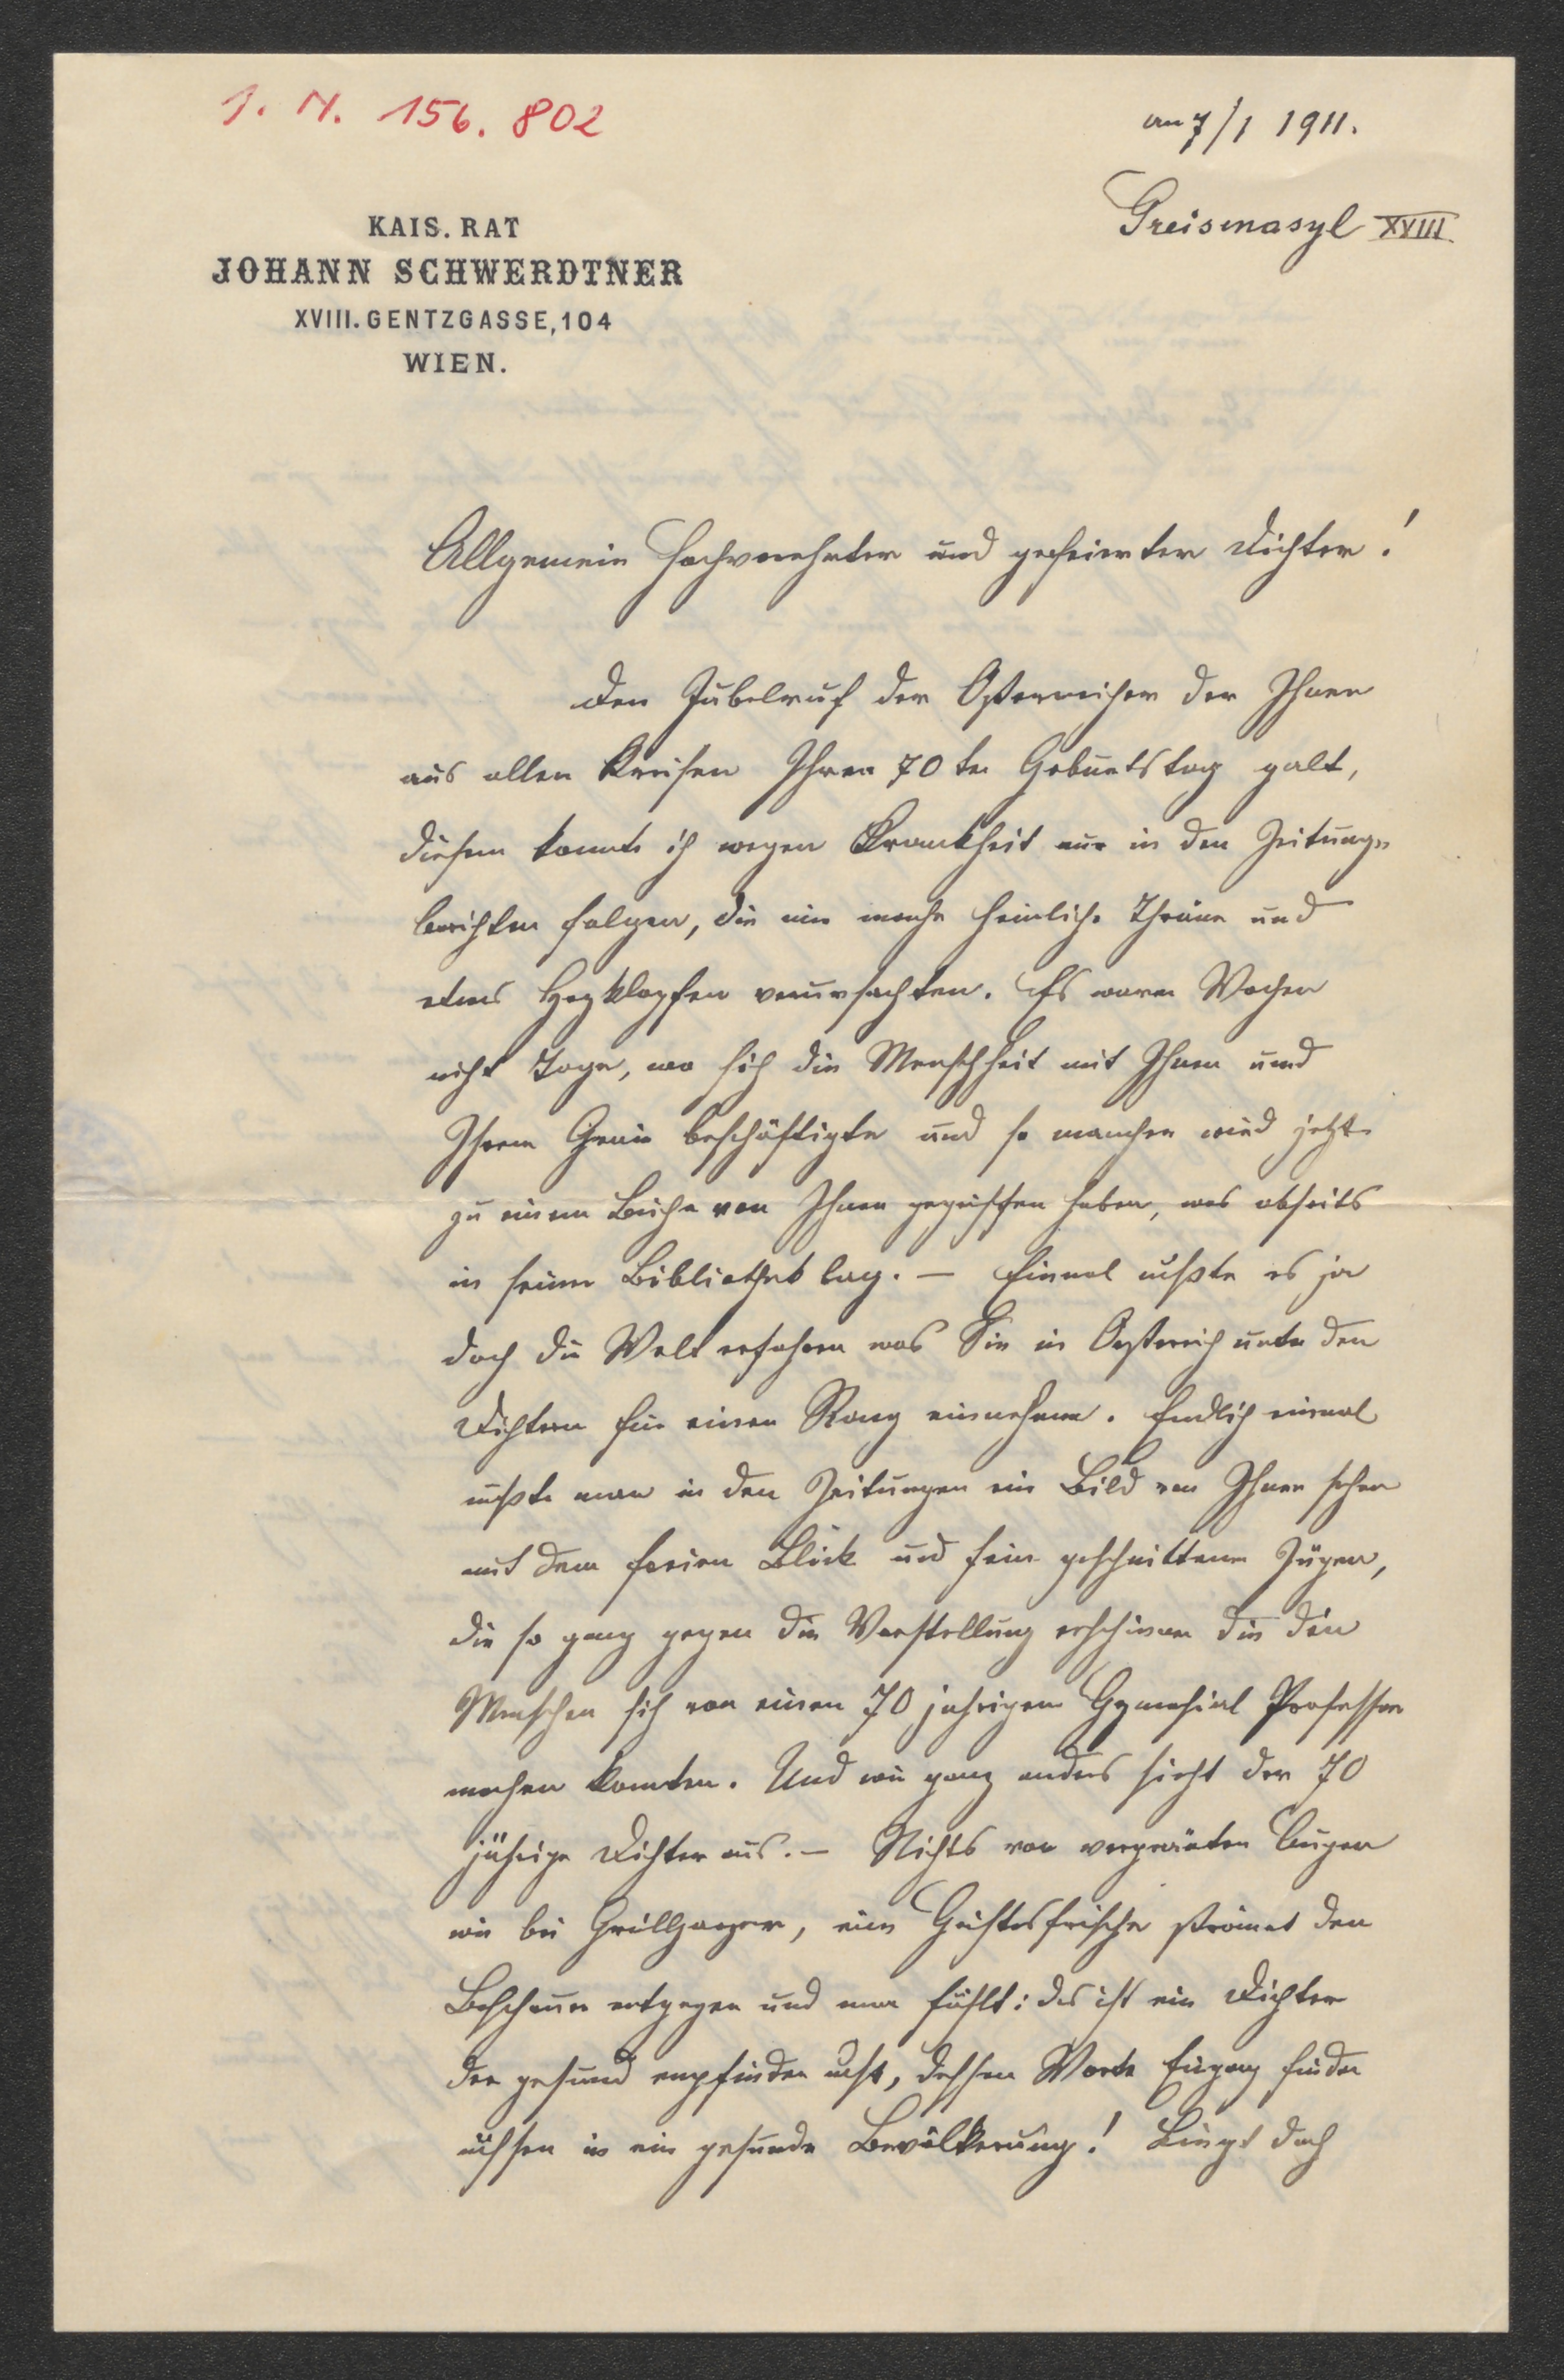 J. N. 156.802
am 7/1 1911.
Greisenasyl XVIII.
KAIS. RAT
JOHANN SCHWERDTNER
XVIII. GENTZGASSE, 104
WIEN.
Allgemein hochverehrter und gefeierter Dichter!
Den Jubelruf der Östereicher der Ihnen
aus allen Kreisen Ihren 70ten Geburtstag galt,
diesem konnte ich wegen Krankheit nur in den Zeitungs-
berichten folgen, die mir manche heimliche Thräne und
etwas Herzklopfen verursachten. Es waren Wochen
nicht Tage, wo sich die Menschheit mit Ihnen und
Ihrem Genie beschäftigte und so mancher wird jetzt
zu einem Buche von Ihnen gegriffen haben, was abseits
in seiner Bibliothek lag. — Einmal mußte es ja
doch die Welt erfahren was Sie in Oesterreich unter den
Dichtern für einen Rang einnehmen. Endlich einmal
mußte man in den Zeitungen ein Bild von Ihnen sehen
mit dem freien Blick und fein geschnittenen Zügen,
die so ganz gegen die Vorstellung erschienen die die
Menschen sich von einen 70 jahrigen Gymnasial Professor
machen konnten. Und wie ganz anders sieht der 70
jährige Dichter aus. — Nichts von Augen
wie bei Grillparzer, eine Geistesfrische strömet den
Beschauer entgegen und man fühlt: das ist ein Dichter
der gesund empfinden muß, dessen Worte Eingang finden
müssen in ein gesunde Bevölkerung! Liegt doch